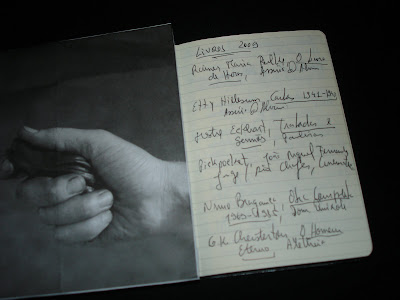 Livros 2009
Rainer Maria Rilke, O Livro
de Horas, Assírio & Alvim
Etty Hillesum, Cartas 1941-1943
Assírio & Alvim
Mestre Eckhart, Tratados e
Sermões, Paulinas
João Miguel Fernandes
Jorge
Nuno Bragança, Obra Completa
1969-1985, Dom Quixote
G.K. Chesterton, O Homem
Eterno, Alêtheia